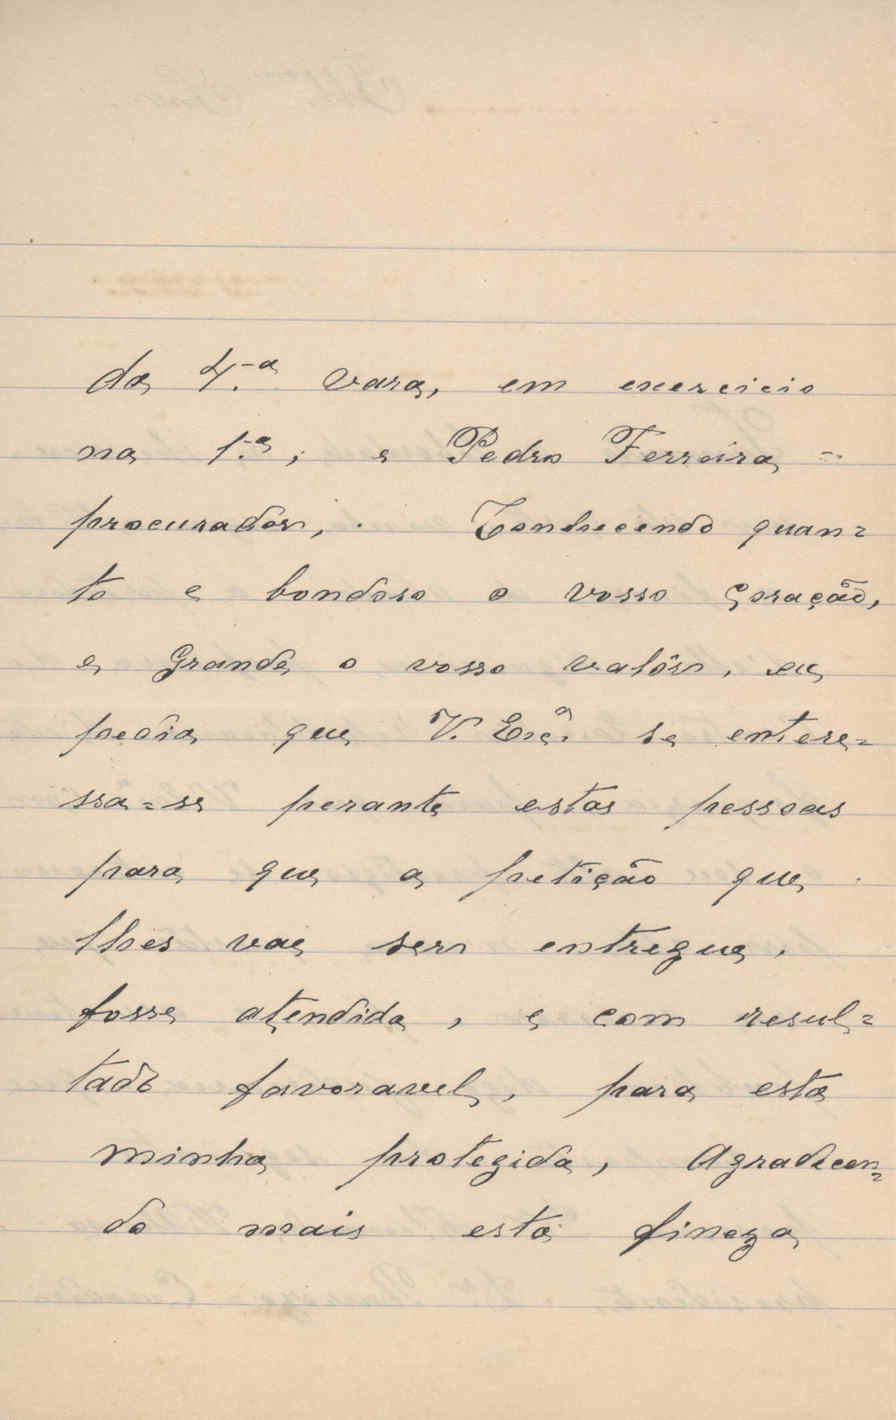 da 4.ª vara, em exercicio
na 1.ª; e Pedro Ferreira =
procurador, . Conhecendo quan=
to e bondoso o vosso Coração,
e grande o vosso valôr, eu
pedia que V. Exª. se entere=
ssa=se perante estas pessoas
para que a petição que
lhes vae ser entregue,
fosse atendida, e com resul=
tado favoravel, para esta
minha protegida, Agradecen=
do mais esta fineza